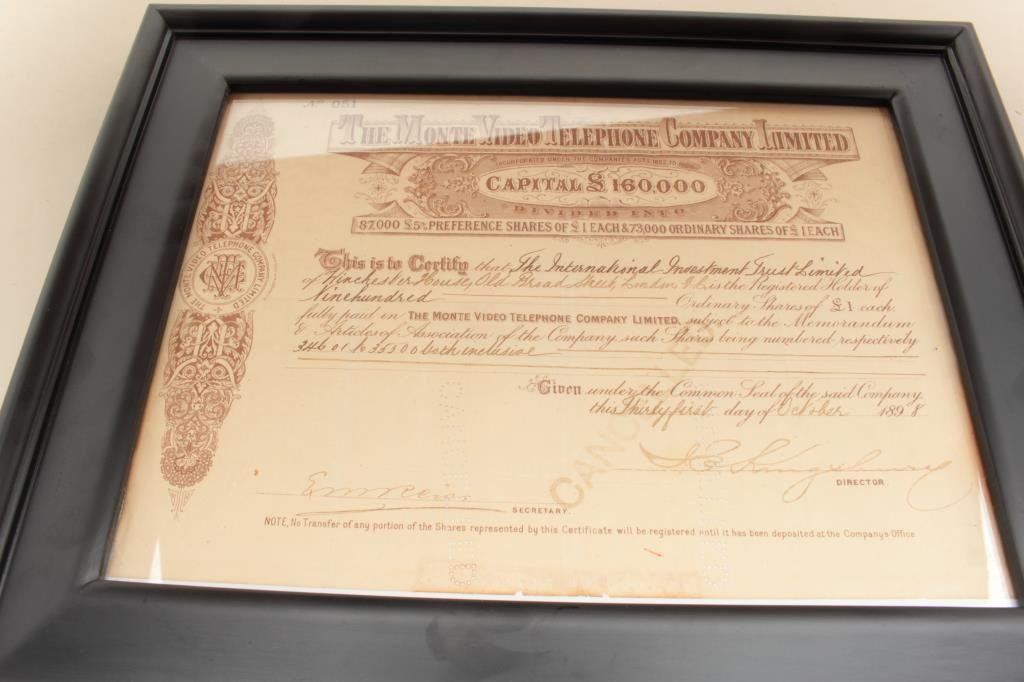 Nº 051
THE MONTE VIDEO TELEPHONE COMPANY LIMITED
INCORPORATED UNDER THE COMPANIES ACTS 1862 TO
CAPITAL £160,000
DIVIDED INTO
87,000 £5% PREFERENCE SHARES OF £1 EACH & 73,000 ORDINARY SHARES OF £1 EACH
THE MONTE VIDEO TELEPHONE COMPANY LIMITED
This is to Certify that The International Investment Trust Limited
of Winchester House, Old Broad Street, London is the Registered Holder of
Ninehundred Ordinary Shares of £1 each
fully paid in THE MONTE VIDEO TELEPHONE COMPANY LIMITED, subject to the Memorandum
& Articles of Association of the Company, such Shares being numbered respectively
34601 to 35500 both inclusive
Given under the Common Seal of the said Company
this Thirty first day of October 1898
CANCELLED
DIRECTOR
SECRETARY.
NOTE, No Transfer of any portion of the Shares represented by this Certificate will be registered until it has been deposited at the Companys Office